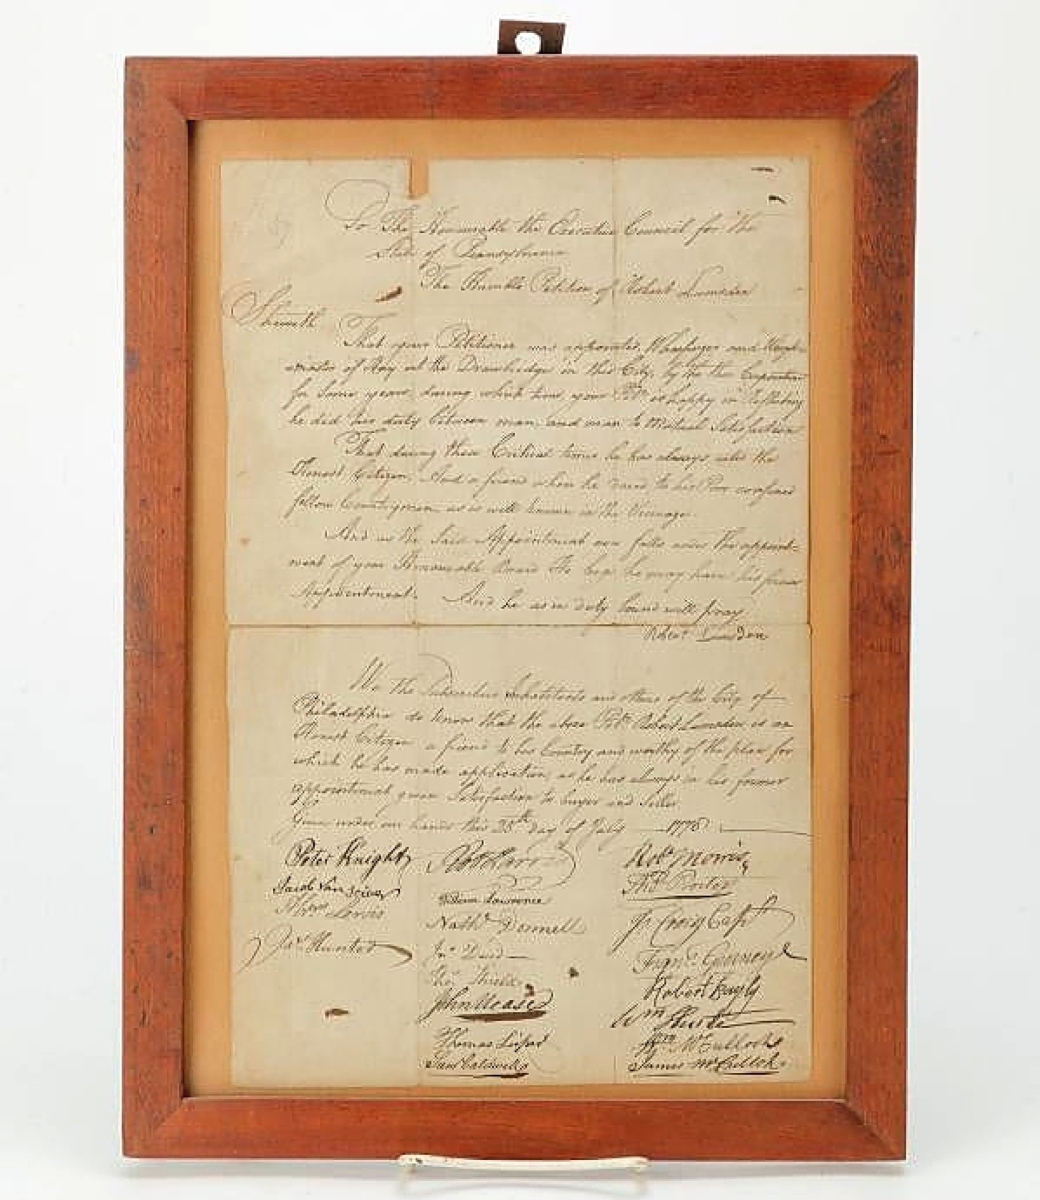 To The Honourable the Executive Council for the
State of Pennsylvania
The Humble Petition of Robert Lumsden
Sheweth
That your Petitioner was appointed Wharfinger and Weigh-
master of Hay at the Drawbridge in this City, by the then Corporation
for some years, during which time your Petr. is happy in Reflecting
he did his duty between man and man to Mutual Satisfaction
That during these Critical times he has always acted the
Honest Citizen, And a friend when he cared to his Poor confined
fellow Countrymen as is well known in the Vicinage.
And as the Said Appointment now falls under the appoint-
ment of your Honourable Board He begs he may have his former
Appointment. And he as in duty bound will pray
Robert Lumsden
We The Subscribers Inhabitants and others of the City of
Philadelphia do know that the above Petr. Robert Lumsden is an
Honest Citizen a friend to his Country and worthy of the place for
which he has made application, as he has always in his former
appointment given Satisfaction to buyer and Seller
Given under our hands this 28th day of July 1778
Peter Knight Robt Harris Robt Morris
Jacob Thos. Procter
William Lawrence
Abrm
Nathl. Donnell Js. Craig Capt
Jas. Hunter Jno David Frans. Gurney
Thos. Shields Robert Bayly
John Mease Wm
Thomas Leiper Jno McCulloch
Saml Caldwell James McCulloh